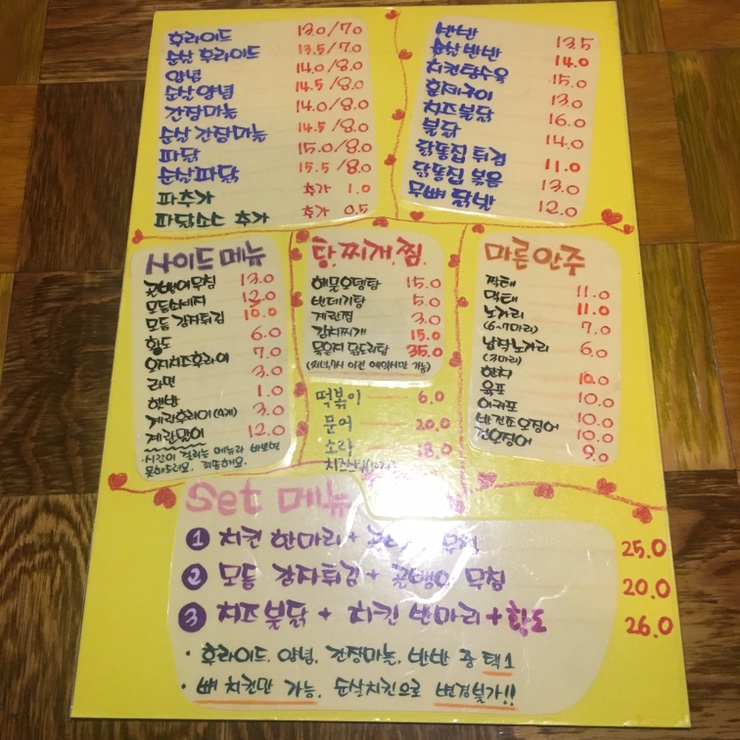 후라이드 13.0/7.0
순살 후라이드 13.5/7.0
양념 14.0/8.0
순살 양념 14.5/8.0
간장마늘 14.0/8.0
순살 간장마늘 14.5/8.0
파닭 15.0/8.0
순살파닭 15.5/8.0
파추가 추가 1.0
파닭소스 추가 추가 0.5
반반 13.5
순살 반반 14.0
치킨탕수육 15.0
훈제구이 13.0
치즈불닭 16.0
불닭 14.0
닭똥집 튀김 11.0
닭똥집 볶음 13.0
무뼈 닭발 12.0
사이드 메뉴
골뱅이무침 13.0
모듬소세지 12.0
모듬 감자튀김 10.0
황도 6.0
오지치즈후라이 7.0
라면 3.0
햇반 1.0
계란후라이(4개) 3.0
계란말이 12.0
·시간이 걸리는 메뉴라 바쁘면
못해드려요. 죄송해요.
탕.찌개.찜.
해물오뎅탕 15.0
번데기탕 5.0
계란찜 3.0
김치찌개 15.0
묵은지 닭도리탕 35.0
(저녁 7시 이전 예약시만 가능)
떡볶이 6.0
문어 20.0
소라 18.0
마른안주
짝태 11.0
먹태 11.0
노가리 7.0
(6~7마리)
납작노가리 6.0
(3마리)
한치 10.0
육포 10.0
아귀포 10.0
반건조 오징어 10.0
건오징어 9.0
Set 메뉴
1 치킨 한마리 + 무침 25.0
2 모듬 감자튀김 + 골뱅이 무침 20.0
3 치즈불닭 + 치킨 반마리 + 황도 26.0
· 후라이드, 양념, 간장마늘, 반반 중 택1
· 뼈 치킨만 가능, 순살치킨으로 변경불가!!